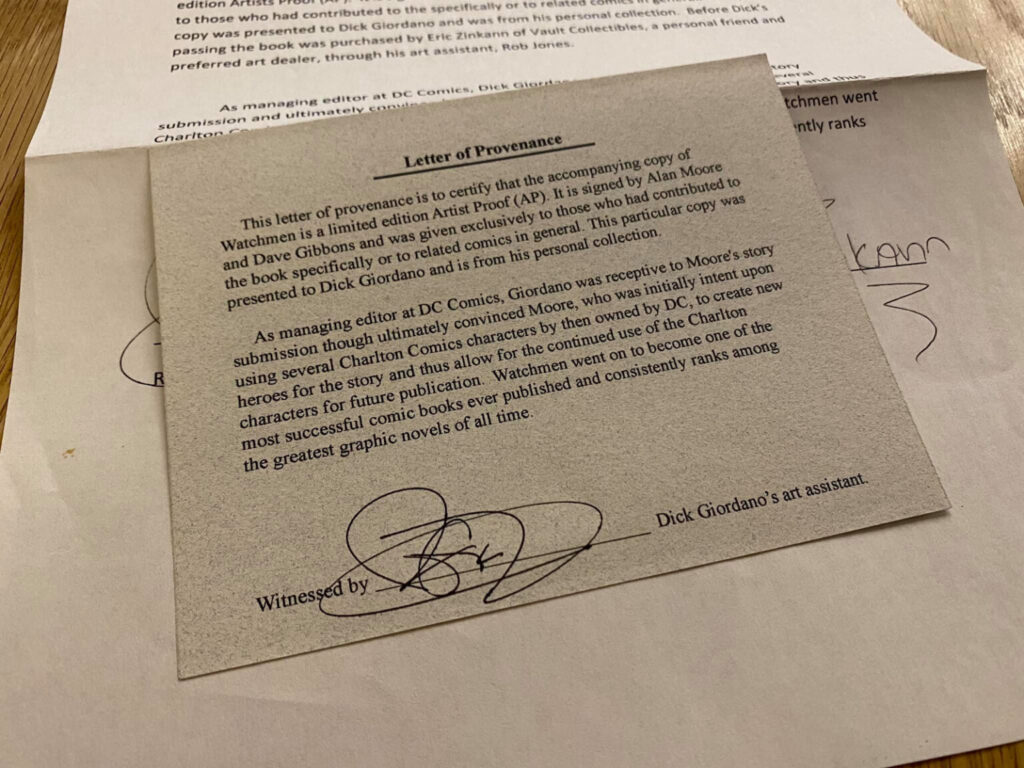 edition Artists Proof
to those who had contributed to the specifically or to related comics in general
copy was presented to Dick Giordano and was from his personal collection. Before Dick's
passing the book was purchased by Eric Zinkann of Vault Collectibles, a personal friend and
preferred art dealer, through his art assistant, Rob Jones.
As managing editor at DC Comics, Dick Giordano
submission and ultimately
Charlton
and thus
tchmen went
ntly ranks
Letter of Provenance
This letter of provenance is to certify that the accompanying copy of
Watchmen is a limited edition Artist Proof (AP). It is signed by Alan Moore
and Dave Gibbons and was given exclusively to those who had contributed to
the book specifically or to related comics in general. This particular copy was
presented to Dick Giordano and is from his personal collection.
As managing editor at DC Comics, Giordano was receptive to Moore's story
submission though ultimately convinced Moore, who was initially intent upon
using several Charlton Comics characters by then owned by DC, to create new
heroes for the story and thus allow for the continued use of the Charlton
characters for future publication. Watchmen went on to become one of the
most successful comic books ever published and consistently ranks among
the greatest graphic novels of all time.
Witnessed by Dick Giordano's art assistant.
R
kann